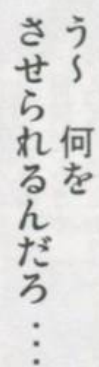 う～　何を
させられるんだろ・・・